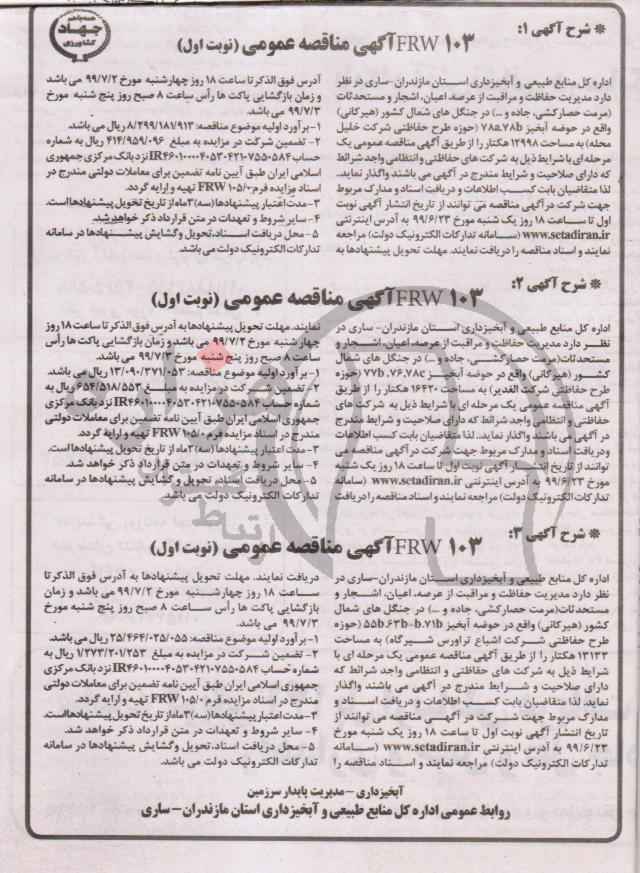 همه با هم
جهاد
کشاورزی
* شرح آگهی 1:
FRW 103 آگهی مناقصه عمومی (نوبت اول)
اداره کل منابع طبیعی و آبخیزداری استان مازندران-ساری در نظر
دارد مدیریت حفاظت و مراقبت از عرصه، اعیان، اشجار و مستحدثات
(مرمت حصارکشی، جاده و ...) در جنگل های شمال کشور (هیرکانی)
واقع در حوضه آبخیز 78a.78b (حوزه طرح حفاظتی شرکت خلیل
محله) به مساحت 12998 هکتار را از طریق آگهی مناقصه عمومی یک
مرحله ای با شرایط ذیل به شرکت های حفاظتی و انتظامی واجد شرائط
که دارای صلاحیت و شرایط مندرج در آگهی می باشند واگذار نماید.
لذا متقاضیان بابت کسب اطلاعات و دریافت اسناد و مدارک مربوط
جهت شرکت در آگهی مناقصه می توانند از تاریخ انتشار آگهی نوبت
اول تا ساعت 18 روز یک شنبه مورخ 99/6/23 به آدرس اینترنتی
www.setadiran.ir (سامانه تدارکات الکترونیک دولت) مراجعه
نمایند و اسناد مناقصه را دریافت نمایند. مهلت تحویل پیشنهادها به
آدرس فوق الذکر تا ساعت 18 روز چهارشنبه مورخ 99/7/2 می باشد
و زمان بازگشایی پاکت ها رأس ساعت 8 صبح روز پنج شنبه مورخ
99/7/3 می باشد.
1-برآورد اولیه موضوع مناقصه: 8/299/181/913 ریال می باشد.
2- تضمین شرکت در مزایده به مبلغ 414/959/096 ریال به شماره
حساب IR460100004053042107550584 نزد بانک مرکزی جمهوری
اسلامی ایران طبق آیین نامه تضمین برای معاملات دولتی مندرج در
اسناد مزایده فرم FRW 105/0 تهیه و ارایه گردد.
3-مدت اعتبار پیشنهادها (سه) 3ماه از تاریخ تحویل پیشنهادهااست.
4- سایر شروط و تعهدات در متن قرارداد ذکر خواهد شد.
5- محل دریافت اسناد، تحویل و گشایش پیشنهادها در سامانه
تدارکات الکترونیک دولت می باشد.
* شرح آگهی 2:
FRW 103 آگهی مناقصه عمومی (نوبت اول)
اداره کل منابع طبیعی و آبخیزداری استان مازندران-ساری در
نظر دارد مدیریت حفاظت و مراقبت از عرصه، اعیان، اشجار و
مستحدثات (مرمت حصارکشی، جاده و ...) در جنگل های شمال
کشور (هیرکانی) واقع در حوضه آبخیز 77b.76.78c (حوزه
طرح حفاظتی شرکت الغدیر) به مساحت 16420 هکتار را از طریق
آگهی مناقصه عمومی یک مرحله ای با شرایط ذیل به شرکت های
حفاظتی و انتظامی واجد شرائط که دارای صلاحیت و شرایط مندرج
در آگهی می باشند واگذار نماید. لذا متقاضیان بابت کسب اطلاعات
ودریافت اسناد و مدارک مربوط جهت شرکت در آگهی مناقصه می
توانند از تاریخ انتشار آگهی نوبت اول تا ساعت 18 روز یک شنبه
مورخ 99/6/23 به آدرس اینترنتی www.setadiran.ir (سامانه
تدارکات الکترونیک دولت) مراجعه نمایند و اسناد مناقصه را دریافت
نمایند. مهلت تحویل پیشنهادها به آدرس فوق الذکر تا ساعت 18 روز
چهار شنبه مورخ 99/7/2 می باشد و زمان بازگشایی پاکت ها رأس
ساعت 8 صبح روز پنج شنبه مورخ 99/7/3 می باشد.
1- برآورد اولیه موضوع مناقصه: 13/090/371/053 ریال می باشد.
2- تضمین شرکت در مزایده به مبلغ 654/518/553 ریال به
شماره حساب IR460100004053042107550584 نزد بانک مرکزی
جمهوری اسلامی ایران طبق آیین نامه تضمین برای معاملات دولتی
مندرج در اسناد مزایده فرم FRW 105/0 تهیه و ارایه گردد.
3- مدت اعتبار پیشنهادها (سه) 3ماه از تاریخ تحویل پیشنهادهااست.
4- سایر شروط و تعهدات در متن قرارداد ذکر خواهد شد.
5- محل دریافت اسناد، تحویل و گشایش پیشنهادها در سامانه
تدارکات الکترونیک دولت می باشد.
* شرح آگهی 3:
FRW 103 آگهی مناقصه عمومی (نوبت اول)
اداره کل منابع طبیعی و آبخیزداری استان مازندران-ساری در
نظر دارد مدیریت حفاظت و مراقبت از عرصه، اعیان، اشجار و
مستحدثات (مرمت حصارکشی، جاده و ...) در جنگل های شمال
کشور (هیرکانی) واقع در حوضه آبخیز 55b.63b-b.71b (حوزه
طرح حفاظتی شرکت اشباع تراورس شیرگاه) به مساحت
13133 هکتار را از طریق آگهی مناقصه عمومی یک مرحله ای با
شرایط ذیل به شرکت های حفاظتی و انتظامی واجد شرائط که
دارای صلاحیت و شرایط مندرج در آگهی می باشند واگذار
نماید. لذا متقاضیان بابت کسب اطلاعات و دریافت اسناد و
مدارک مربوط جهت شرکت در آگهی مناقصه می توانند از
تاریخ انتشار آگهی نوبت اول تا ساعت 18 روز یک شنبه مورخ
99/6/23 به آدرس اینترنتی www.setadiran.ir (سامانه
تدارکات الکترونیک دولت) مراجعه نمایند و اسناد مناقصه را
دریافت نمایند. مهلت تحویل پیشنهادها به آدرس فوق الذکر تا
ساعت 18 روز چهارشنبه مورخ 99/7/2 می باشد و زمان
بازگشایی پاکت ها رأس ساعت 8 صبح روز پنج شنبه مورخ
99/7/3 می باشد.
1- برآورد اولیه موضوع مناقصه: 25/464/025/055 ریال می باشد.
2- تضمین شرکت در مزایده به مبلغ 1/273/201/253 ریال به
شماره حساب IR460100004053042107550584 نزد بانک مرکزی
جمهوری اسلامی ایران طبق آیین نامه تضمین برای معاملات دولتی
مندرج در اسناد مزایده فرم FRW 105/0 تهیه و ارایه گردد.
3-مدت اعتبار پیشنهادها (سه) 3ماه از تاریخ تحویل پیشنهادهااست.
4- سایر شروط و تعهدات در متن قرارداد ذکر خواهد شد.
5- محل دریافت اسناد، تحویل و گشایش پیشنهادها در سامانه
تدارکات الکترونیک دولت می باشد.
آبخیزداری-مدیریت پایدار سرزمین
روابط عمومی اداره کل منابع طبیعی و آبخیزداری استان مازندران-ساری